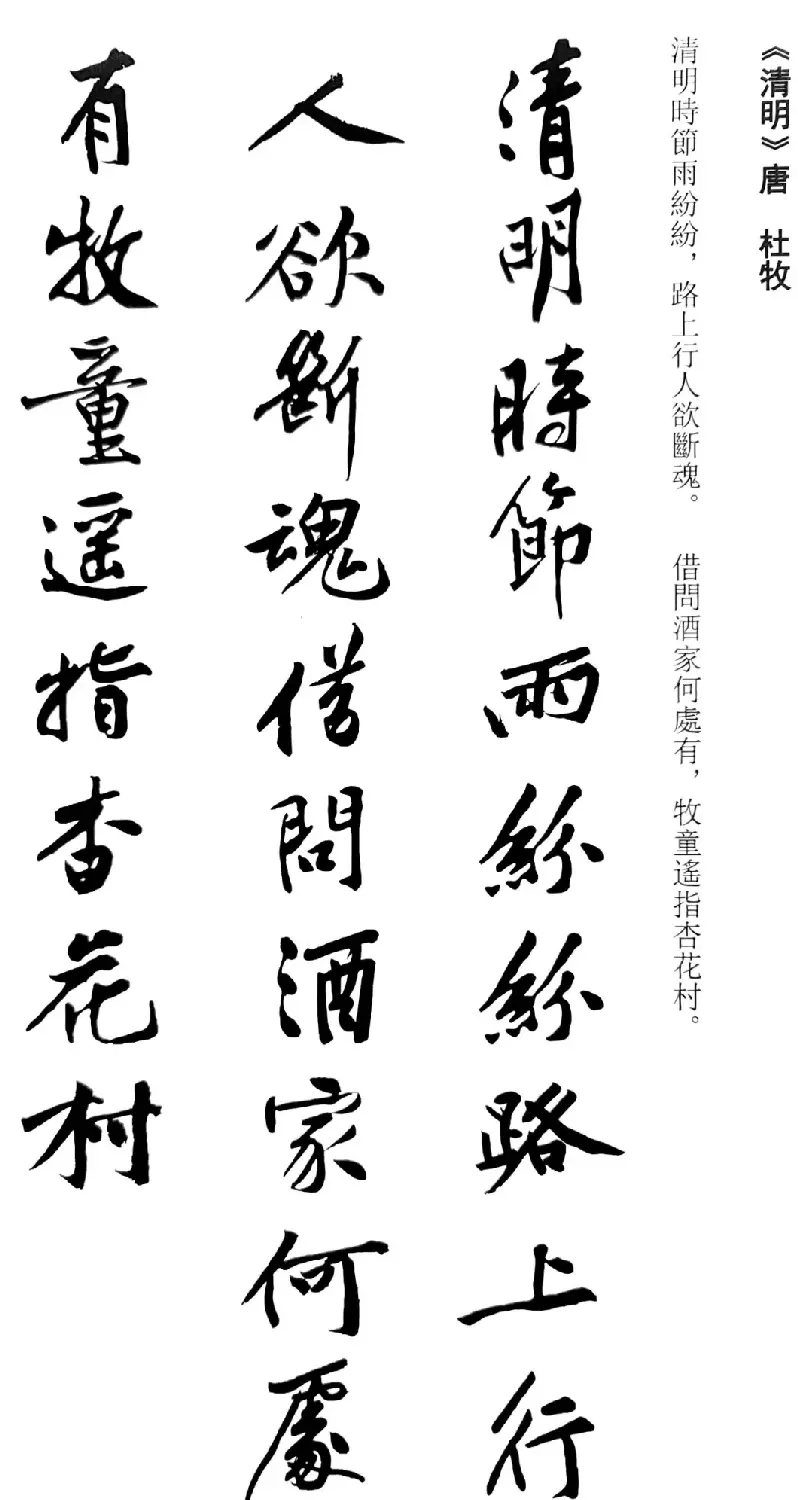 《清明》唐 杜牧
清明時節雨紛紛，路上行人欲斷魂。 借問酒家何處有，牧童遙指杏花村。
清明時節雨紛紛路上行
人欲斷魂借問酒家何處
有牧童遥指杏花村